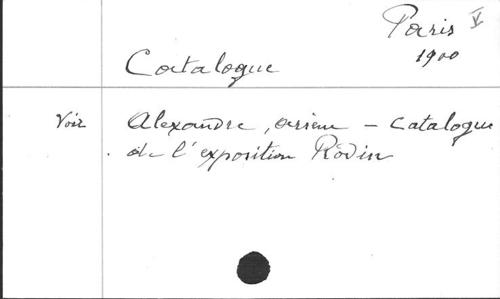 Paris V
1900
Catalogue
Voir Alexandre, Arsène – Catalogue
de l'exposition Rodin